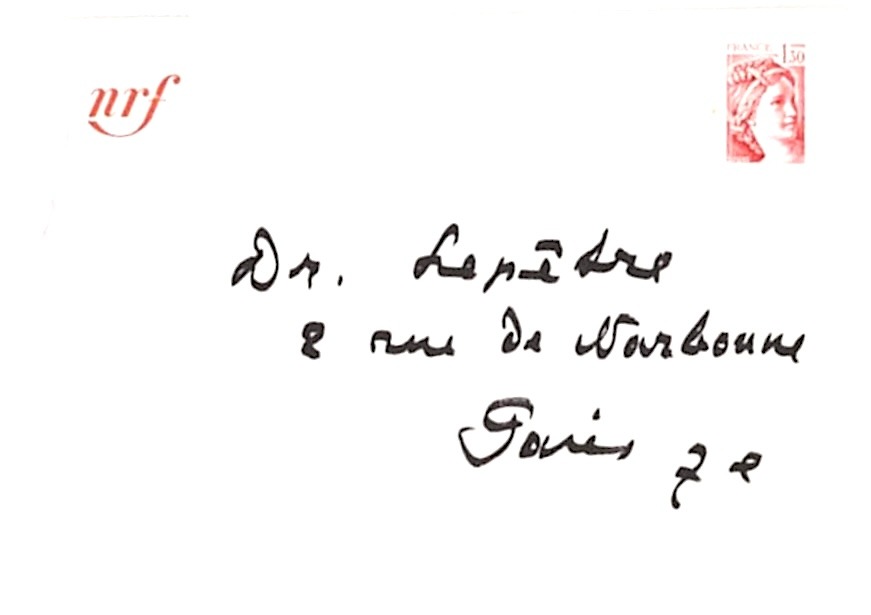 nrf
FRANCE 1,30
Dr. Lepêtre
2 rue de Narbonne
Paris 7e